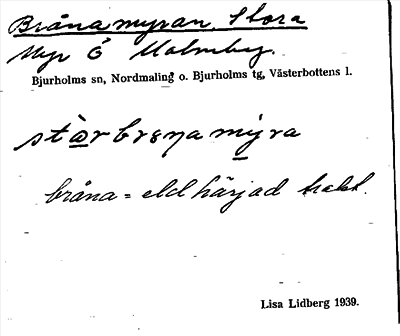 Brånamyran, Stora
Myr Ö Malmby.
Bjurholms sn, Nordmaling o. Bjurholms tg, Västerbottens l.
stàr brɘna mỳra
bråna = eldhärjad trakt.
Lisa Lidberg 1939.